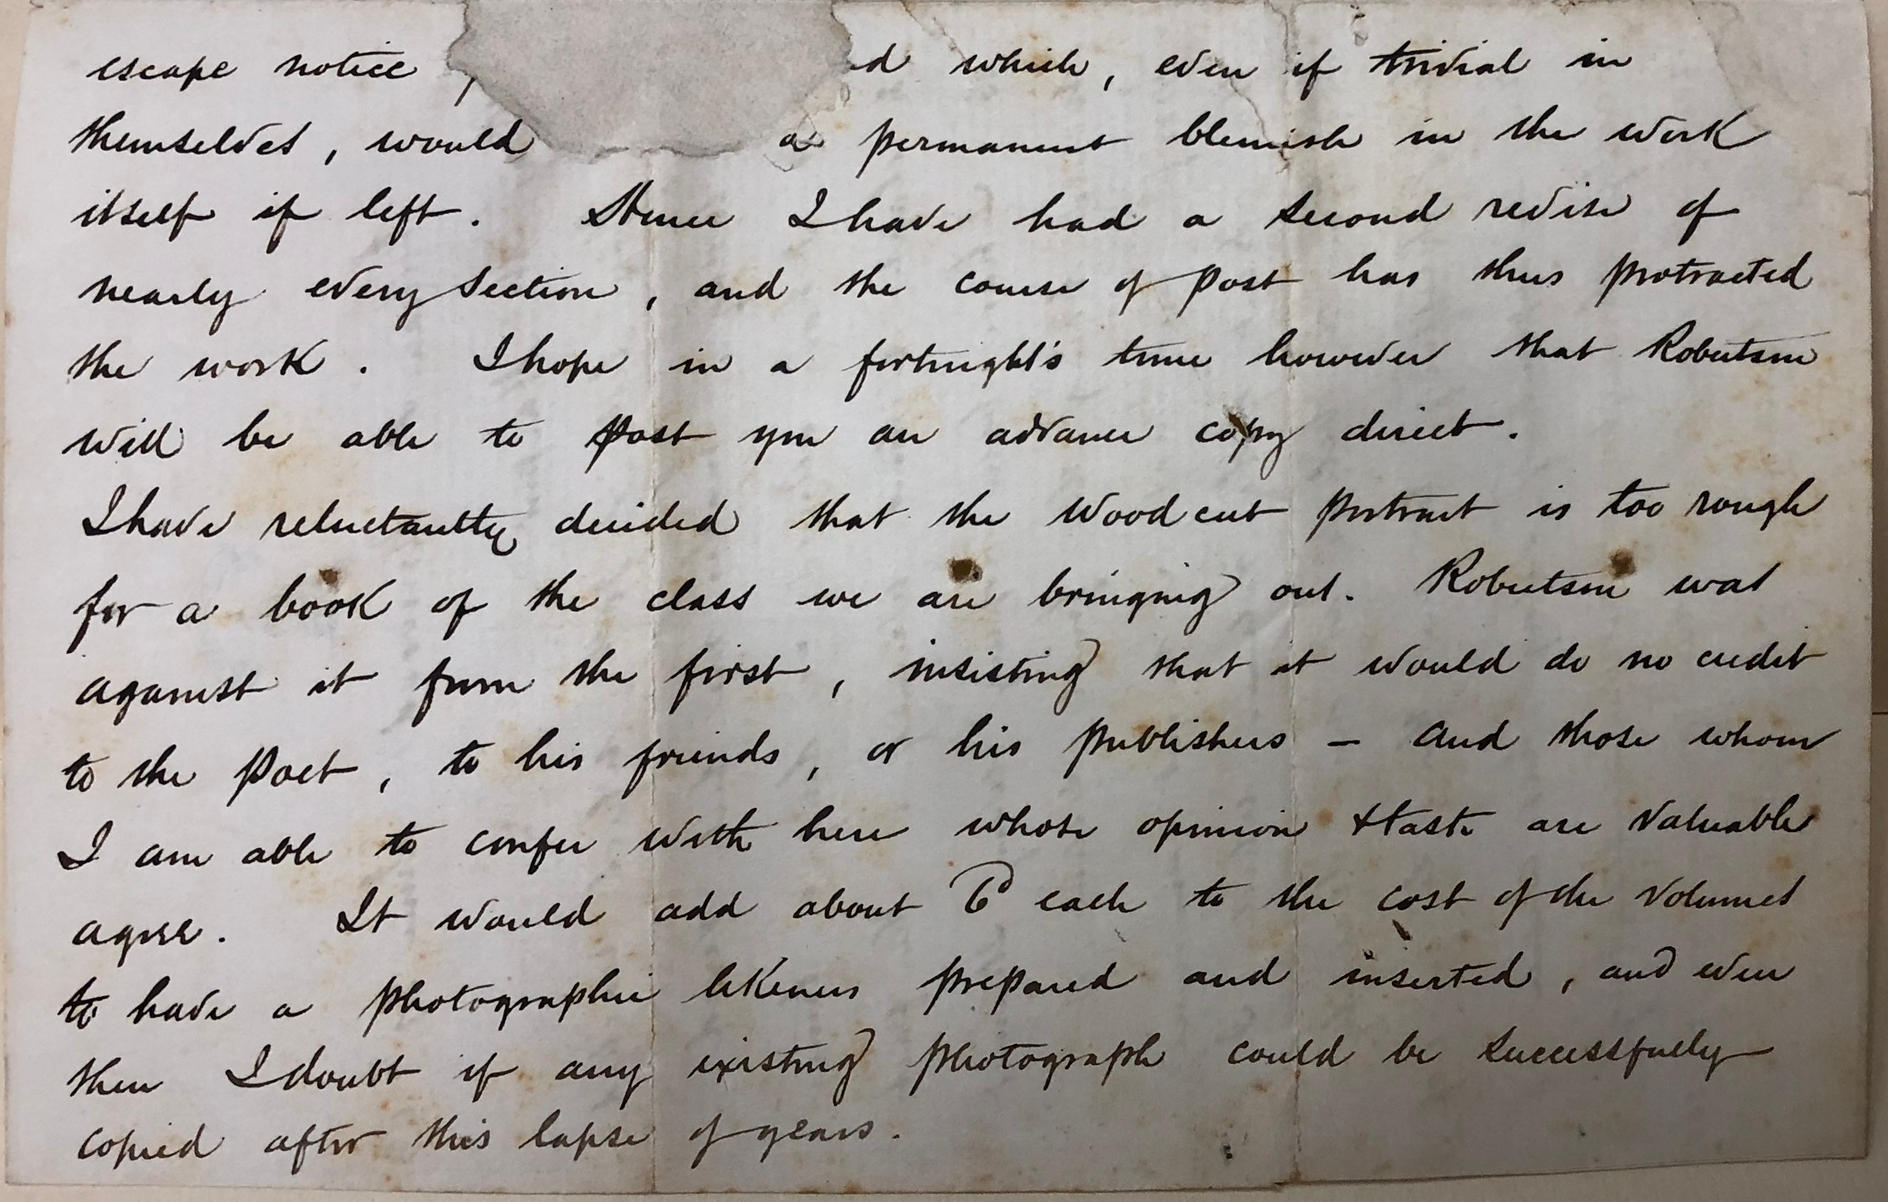 escape notice which, even if trivial in
themselves, would a permanent blemish in the work
itself if left. Hence I have had a second revise of
nearly every section, and the course of post has thus protracted
the work. I hope in a fortnight's time however that Robertson
will be able to post you an advance copy direct.
I have reluctantly decided that the woodcut portrait is too rough
for a book of the class we are bringing out. Robertson was
against it from the first, insisting that it would do no credit
to the Poet, to his friends, or his publishers – and those whom
I am able to confer with here whose opinion & taste are valuable
agree. It would add about each to the cost of the volumes
to have a photographic likeness prepared and inserted, and even
then I doubt if any existing photograph could be successfully
copied after this lapse of years.